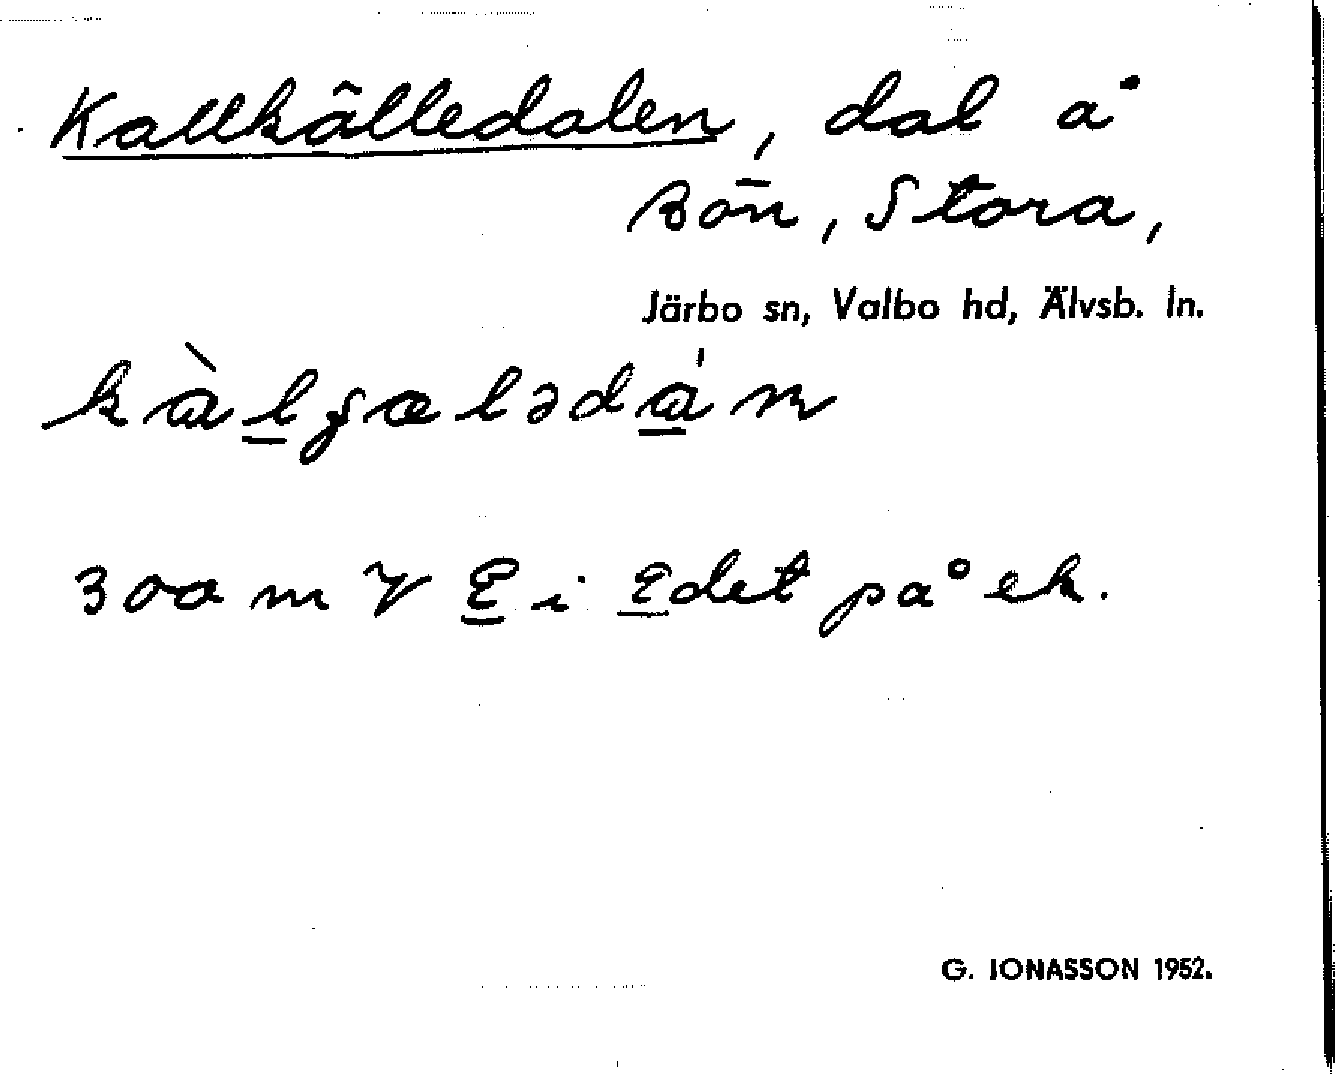 Kallkälledalen, dal å
Bön, Stora,
Järbo sn, Valbo hd, Älvsb. ln.
300 m V E i Edet på ek.
G. JONASSON 1952.